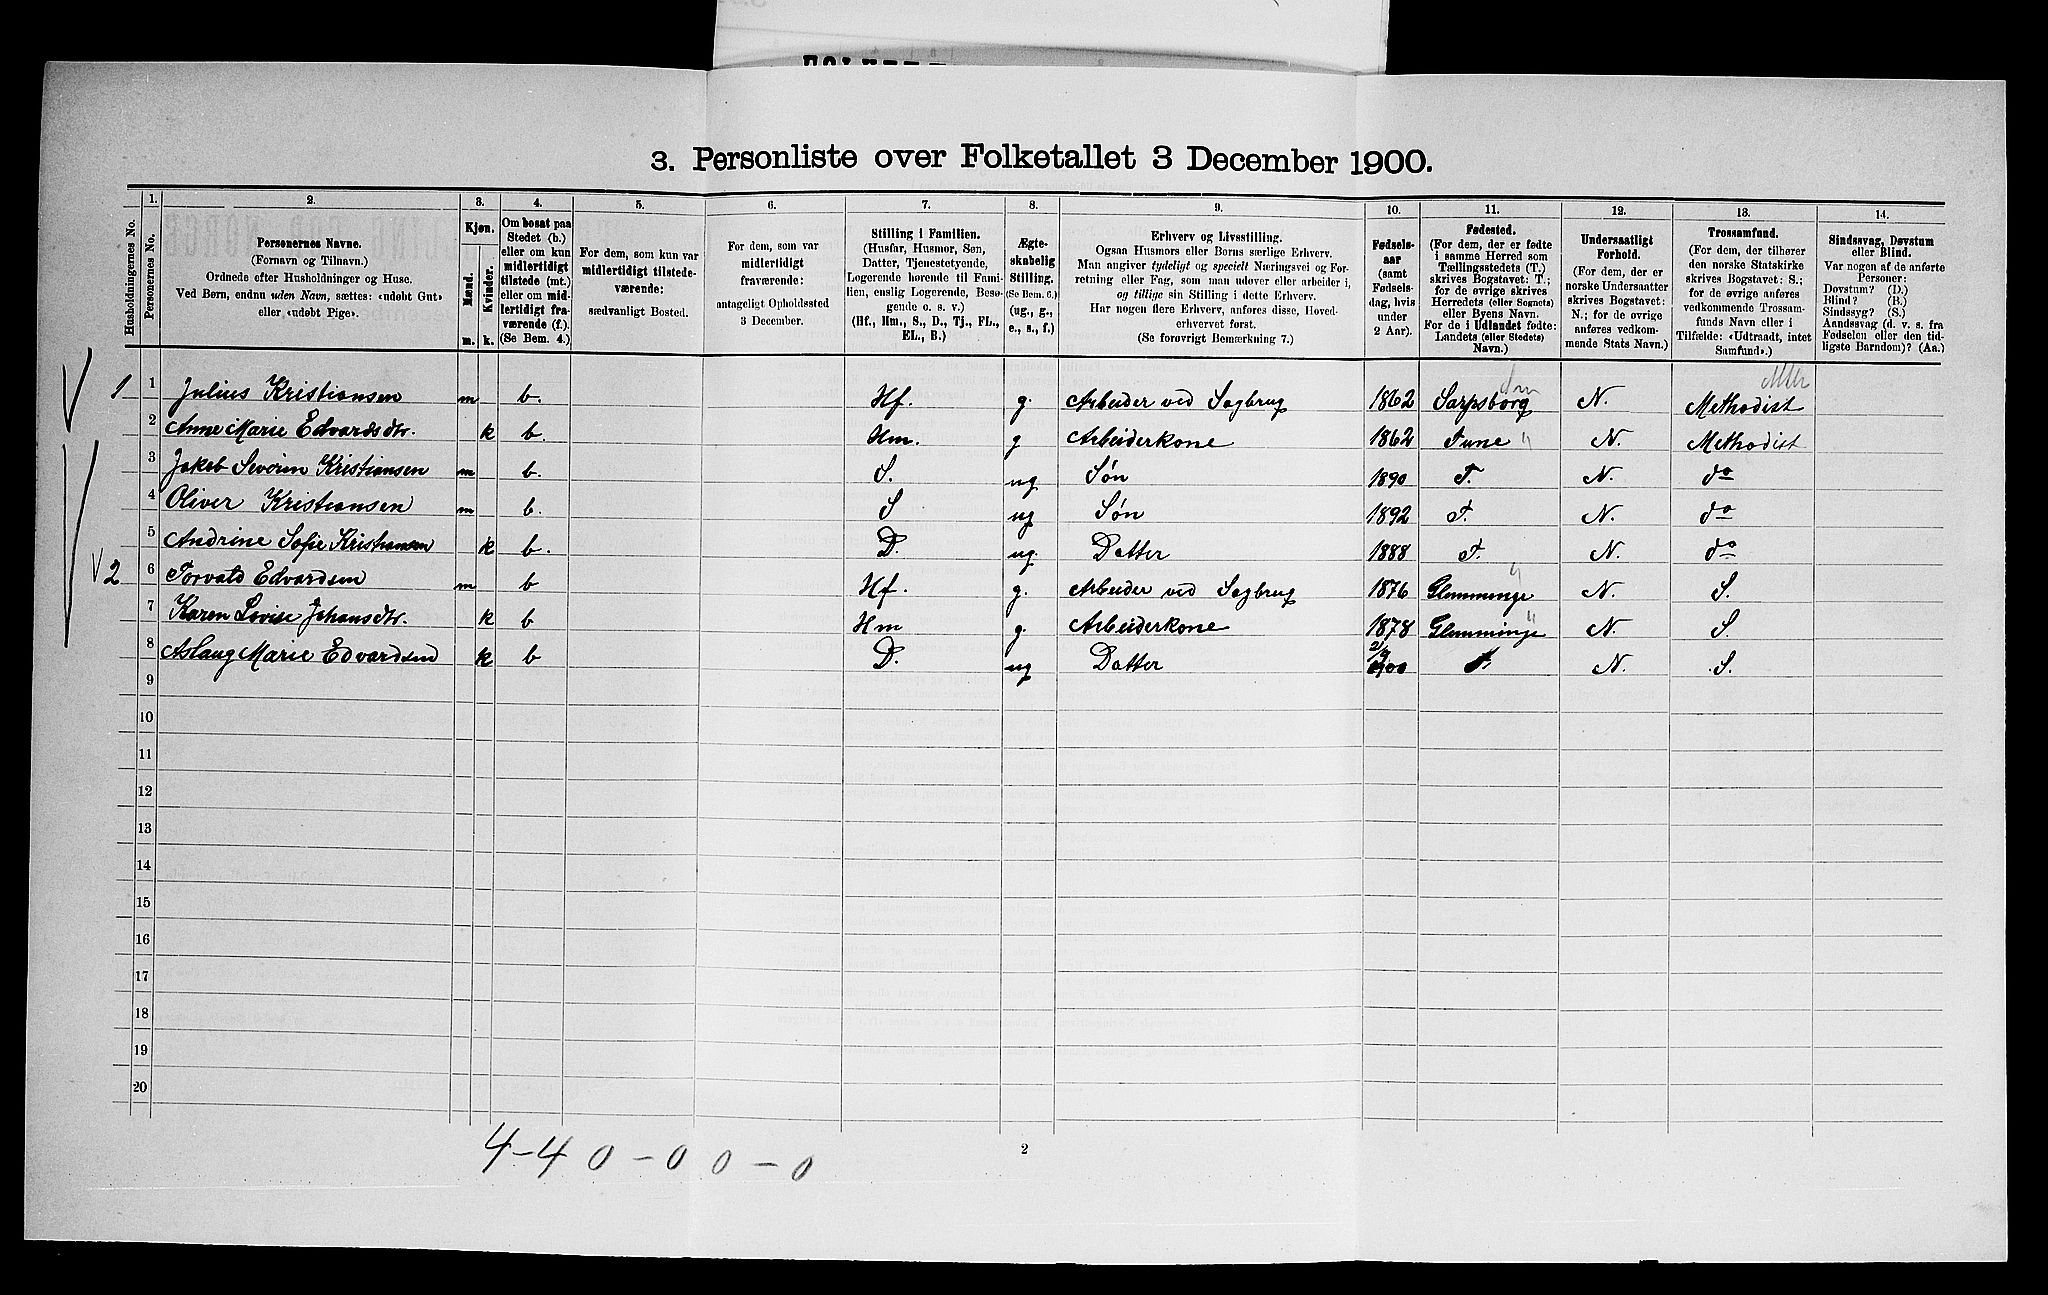 3. Personliste over Folketallet 3 December 1900.
Husholdningernes No.
1. Personernes No.
2.
Personernes Navne.
(Fornavn og Tilnavn.)
Ordnede efter Husholdninger og Huse.
Ved Børn, endnu uden Navn, sættes: «udøbt Gut»
eller «udøbt Pige».
3.
Kjøn.
Mænd. Kvinder.
m. k.
4.
Om bosat paa
Stedet (b.)
eller om kun
midlertidigt
tilstede (mt.)
eller om mid-
lertidigt fra-
værende (f.).
(Se Bem. 4.)
5.
For dem, som kun var
midlertidigt tilstede-
værende:
sædvanligt Bosted.
6.
For dem, som var
midlertidigt
fraværende:
antageligt Opholdssted
3 December.
7.
Stilling i Familien.
(Husfar, Husmor, Søn,
Datter, Tjenestetyende,
Logerende hørende til Fami-
lien, enslig Logerende, Besø-
gende o. s. v.)
(Hf., Hm., S., D., Tj., FL.,
EL., B.)
8.
Ægte-
skabelig
Stilling.
(Se Bem. 6.)
(ug., g.,
e., s., f.)
9.
Erhverv og Livsstilling.
Ogsaa Husmors eller Børns særlige Erhverv.
Man angiver tydeligt og specielt Næringsvei og For-
retning eller Fag, som man udøver eller arbeider i,
og tillige sin Stilling i dette Erhverv.
Har nogen flere Erhverv, anføres disse, Hoved-
erhvervet først.
(Se forøvrigt Bemærkning 7.)
10.
Fødsels-
aar
(samt
Fødsels-
dag, hvis
under
2 Aar).
11.
Fødested.
(For dem, der er fødte
i samme Herred som
Tællingsstedets (T.)
skrives Bogstavet: T.;
for de øvrige skrives
Herredets (eller Sognets)
eller Byens Navn.
For de i Udlandet fødte:
Landets (eller Stedets)
Navn.)
12.
Undersaatligt
Forhold.
(For dem, der er
norske Undersaatter
skrives Bogstavet:
N.; for de øvrige
anføres vedkom-
mende Stats Navn.)
13.
Trossamfund.
(For dem, der tilhører
den norske Statskirke
skrives Bogstavet: S.;
for de øvrige anføres
vedkommende Trossam-
funds Navn eller i
Tilfælde: «Udtraadt, intet
Samfund».)
14.
Sindssvag, Døvstum
eller Blind.
Var nogen af de anførte
Personer:
Døvstum? (D.)
Blind? (B.)
Sindssyg? (S.)
Aandssvag (d. v. s. fra
Fødselen eller den tid-
ligste Barndom)? (Aa.)
1 1 Julius Kristiansen m b. Hf. g. Arbeider ved Sagbrug 1862 Sarpsborg N. Methodist
2 Anne Marie Edvardsdtr. k b. Hm. g Arbeiderkone 1862 Tune " N. Methodist
3 Jakob Severin Kristiansen m b. S. ug Søn 1890 T. N. do
4 Oliver Kristiansen m b. S ug Søn 1892 T. N. do
5 Andrine Sofie Kristiansen k b. D. ug. Datter 1888 T. N. do
2 6 Torvald Edvardsen m b Hf. g. Arbeider ved Sagbrug 1876 Glemminge " N. S.
7 Karen Lovise Johansdtr. k b Hm g. Arbeiderkone 1878 Glemminge " N. S.
8 Aslaug Marie Edvardsen k b D. ug Datter T. N. S.
9
10
11
12
13
14
15
16
17
18
19
20
4-4 0-0 0-0
2